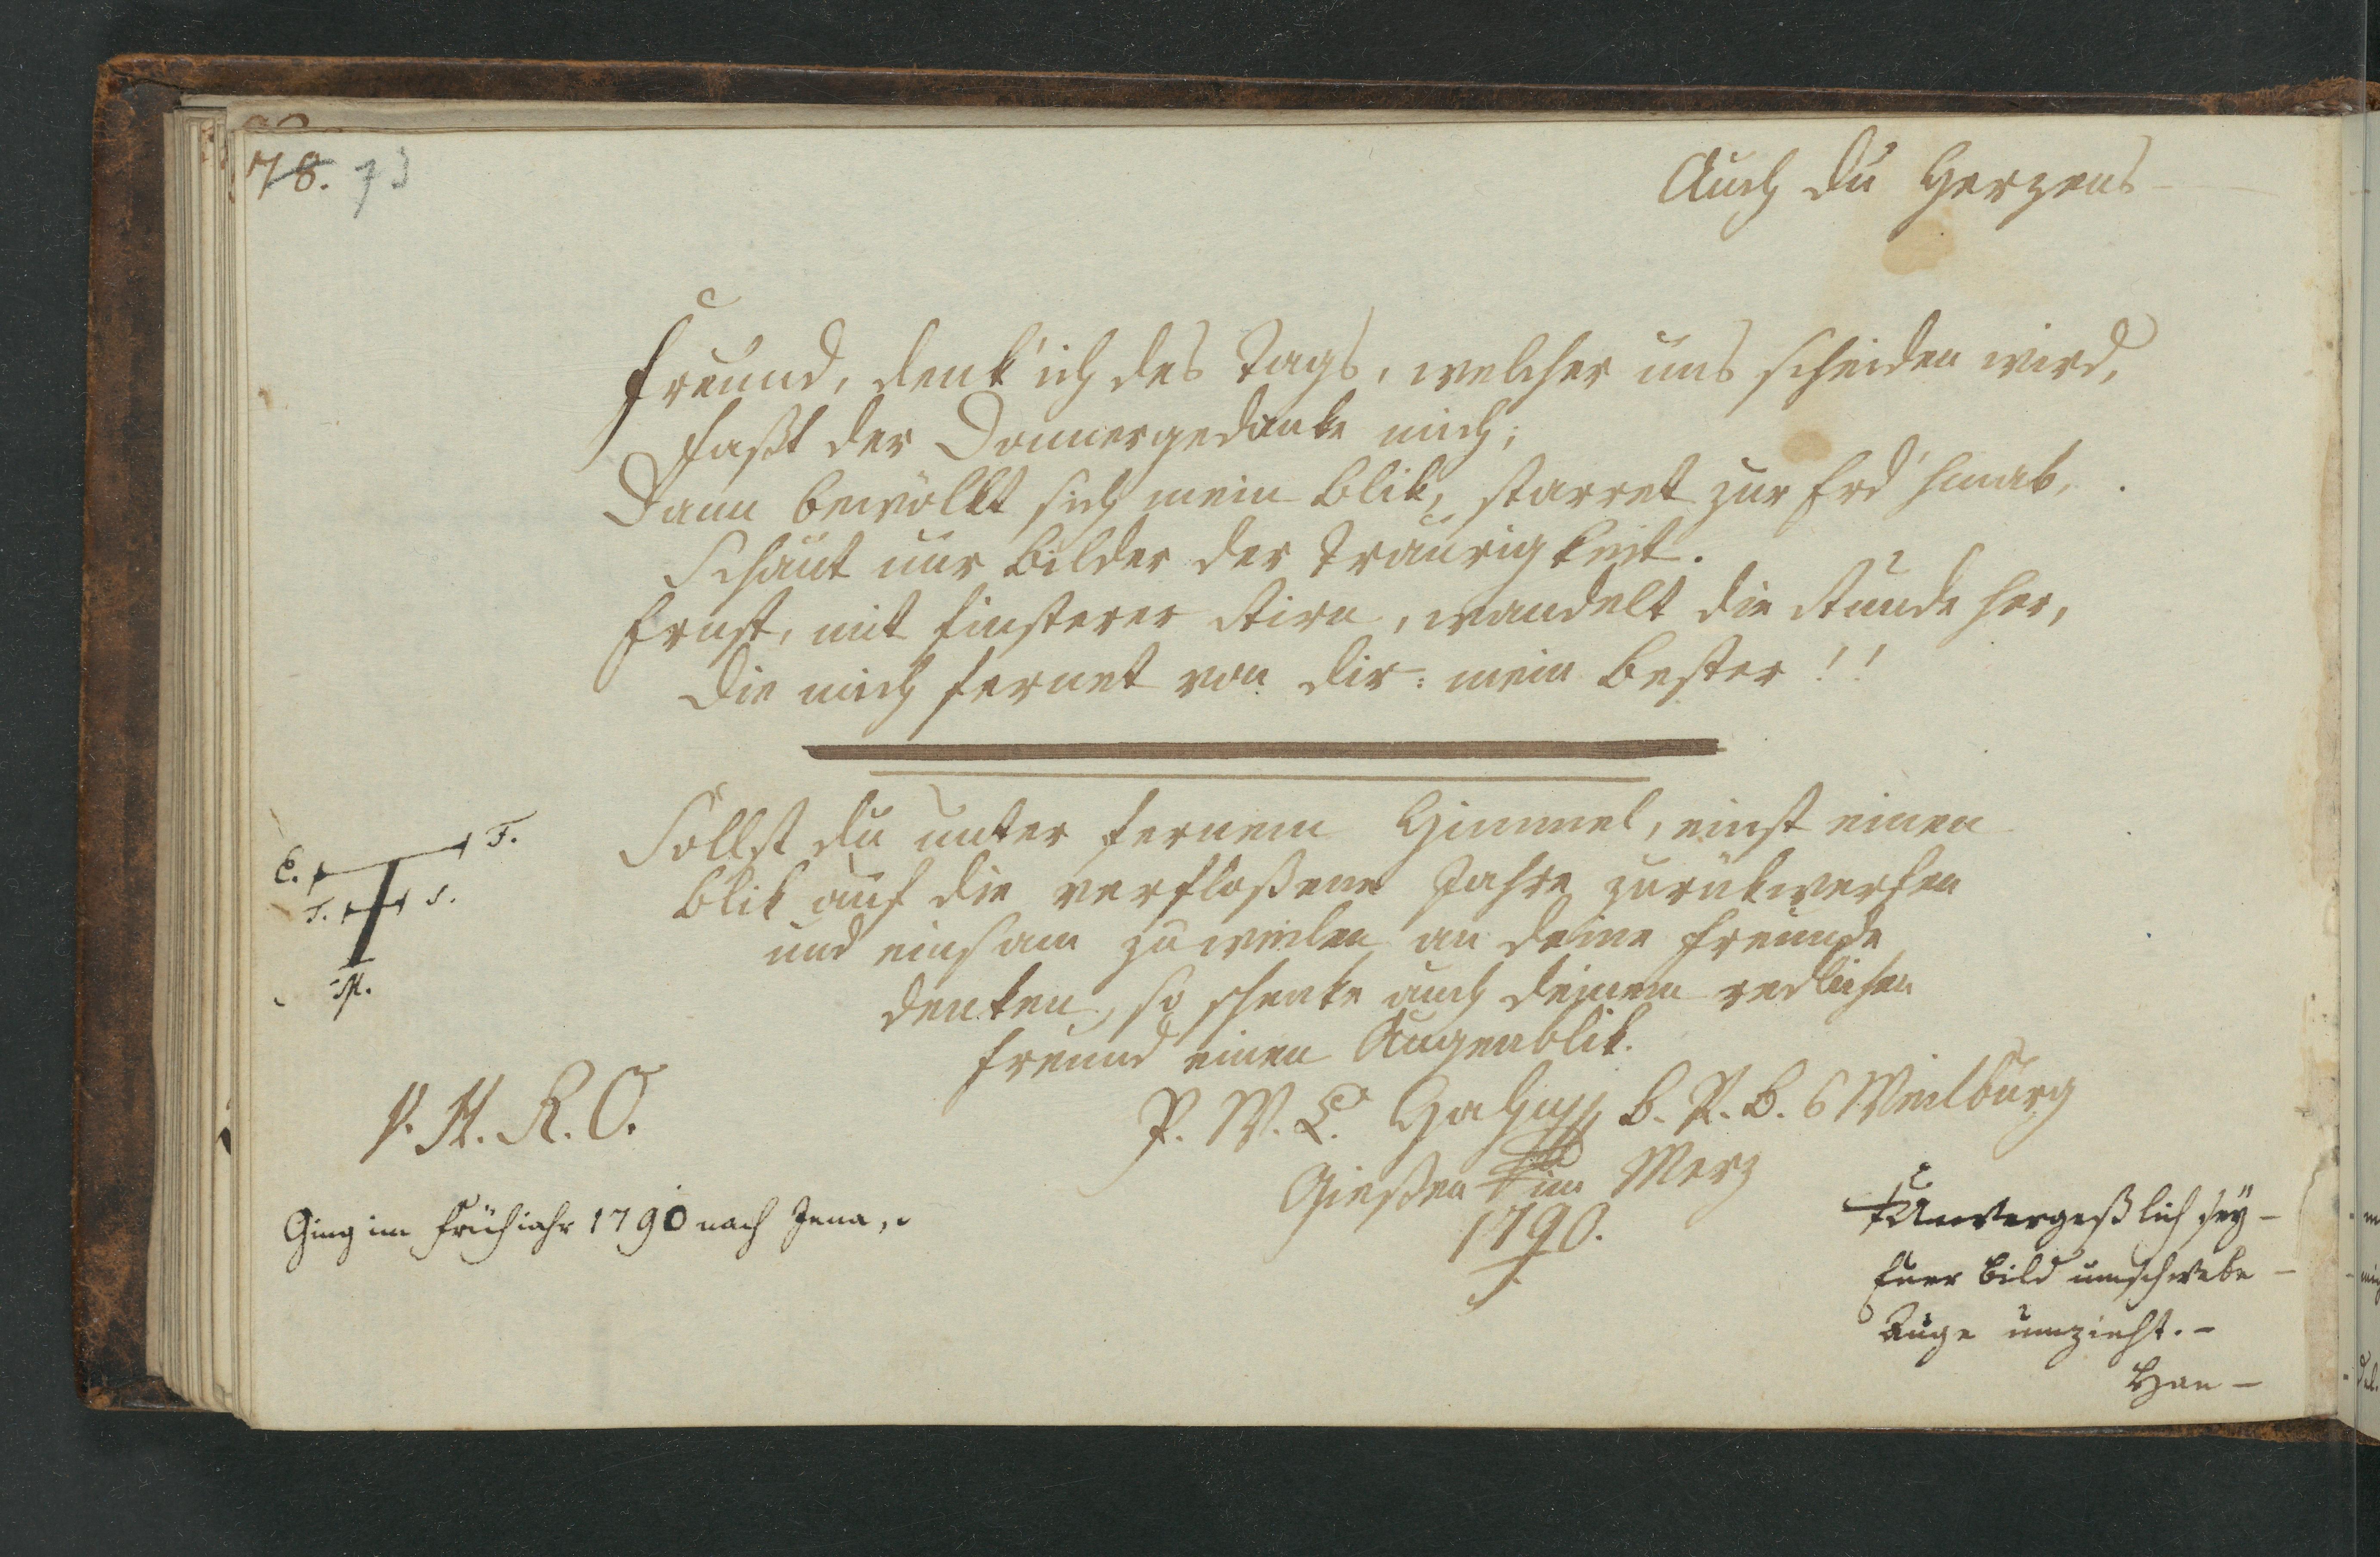 78. 73
Auch du Herzens-
Freund, denk' ich des Tags, welcher uns scheiden wird,
faßt der Donnergedanke mich;
Dann bewölkt sich mein Blik, starret zur Erd' hinab,
Schaut nur Bilder der Traurigkeit.
Ernst, mit finsterer Stirn, wandelt die Stunde her,
Die mich fernet von dir: mein Bester!!
Sollst du unter fernem Himmel, einst einen
Blik auf die verfloßene Jahre zurükwerfen
und einsam zuweilen an deine Freunde
denken, so schenke auch deinem redlichen
Freund einen Augenblik.
E. T.
T. S.
M.
V. H. R. O.
P. W. L. B. R. B. Weilburg
Gießen im Merz
1790.
Ging im Frühiahr 1790 nach Jena,
Unvergeßlich sey -
Euer Bild umschwebe -
Auge umzieht. -
Han -